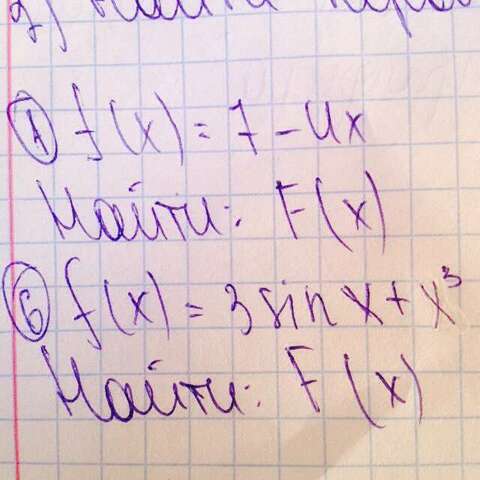 2) Найти
А f(x) = 7 - 4x
Найти: F(x)
Б f(x) = 3 sin x + x³
Найти: F(x)